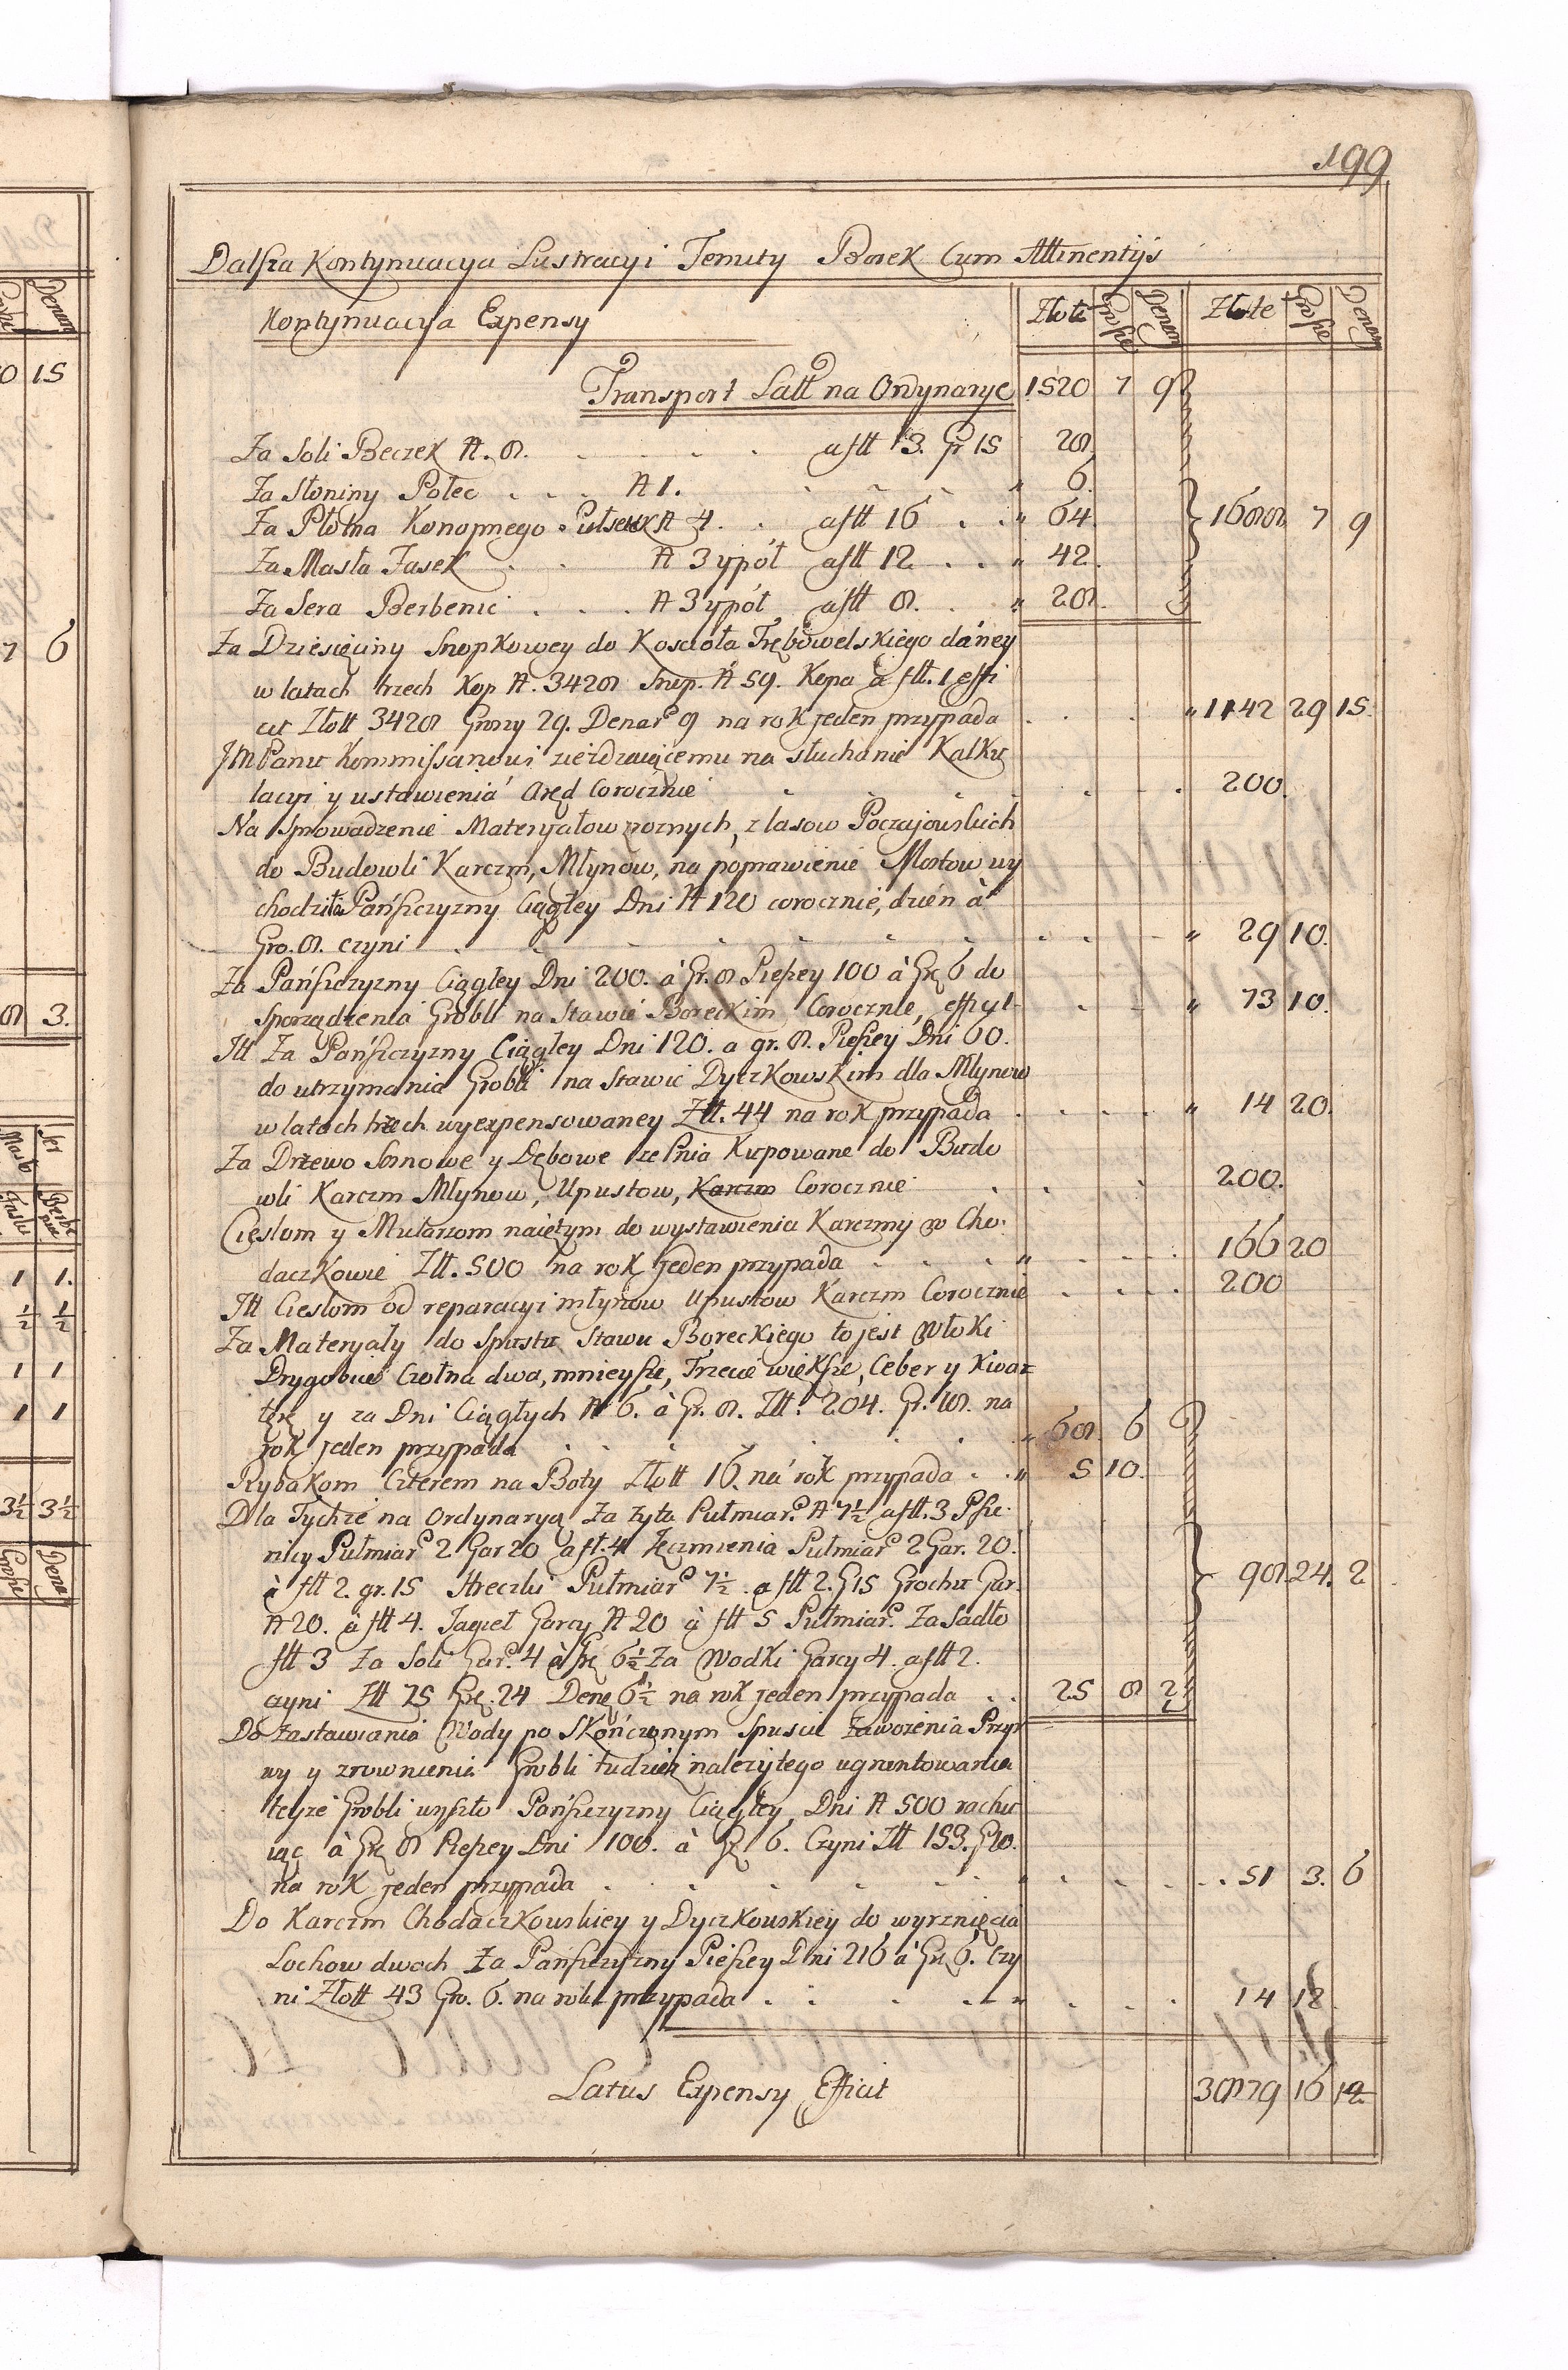 199
Dalsza Kontynuacya Lustracyi Tenuty Borek Cum Attinentijs
Kontynuacya Expensy
Złote Grosze Denary Złote Grosze Denary
Transport Latt na Ordynaryę 1520 7 9
Za Soli Beczek N. 8. a fltt 3. Gr 15 28
Za Słoniny Połec N 1. " 6.
Za Płotna Konopnego Pułsetek N 4. a fltt 16 " 64. 1688. 7 9
Za Masła Fasek N 3 y pół a fltt 12 " 42.
Za Sera Berbenic N 3 y pół a fltt 8. " 28.
Za Dziesięciny Snopkowey do Kościoła Trębowelskiego daney
w latach trzech Kop N. 3428 Snop. N 59. Kopa a flt. 1 effi
cit Złott 3428 Groszy 29. Denar 9 na rok jeden przypada " 1142 29 15.
JmPanu Kommissarzowi zieżdzaiącemu na słuchanie Kalku
lacyi y ustawienia Aręd Corocznie 200.
Na Sprowadzenie Materyałow roznych, z lasow Poczajowskich
do Budowli Karczm, Młynow, na poprawienie Mostow wy
chodziła Pańszczyzny Ciągłey Dni N 120 corocznie, dzień à
Gro. 8. czyni " 29 10.
Za Pańszczyzny Ciągłey Dni 200. à Gr. 8 Pieszey 100 à Gr 6 do
sporządzenia Grobli na Stawie Boreckim Corocznie, effi " 73 10.
Itt Za Pańszczyzny Ciągłey Dni 120. a gr. 8. Pieszey Dni 60.
do utrzymania Grobli na Stawie Dyczkowskim dla Młynow
w latach trzech wyexpensowaney Złt. 44 na rok przypada " 14 20.
Za Drzewo Sosnowe y Dębowe ze Pnia Kupowane do Budo
wli Karczm Młynow, Upustow, Karczm Corocznie 200.
Cieslom y Mularzom naiętym do wystawienia Karczmy w Cho
daczkowie Złt. 500 na rok jeden przypada " 166 20
Itt Cieslom od reparacyi młynow Upustow Karczm Corocznie 200
Za Materyały do Spustu Stawu Boreckiego to jest Włoki
Drygubice Czołna dwa, mnieysze, Trzecie większe, Ceber y Kwar
tę y za Dni Ciągłych N 6. à Gr. 8. Złt. 204. Gr. 18. na
rok jeden przypada " 68. 6
Rybakom Czterem na Boty Złott 16. na rok przypada " 5 10.
Dla Tychże na Ordynaryą Za żyta Pułmiar N 7½ a fltt. 3 Psze
nicy Pułmiar 2 Gar 20 a fl. 4 Jęczmienia Pułmiar 2 Gar. 20.
à fltt 2. gr. 15 Hreczki Pułmiar 7½ a fltt 2. G 15 Grochu Gar. 98. 24. 2
N 20. à fltt 4. Jagieł Garcy N 20 à fltt 5 Pułmiar. Za Sadło
fltt 3 Za Soli Gar. 4 à Gr 6½ Za Wodki Garcy 4. a fltt 2.
czyni Złt 75 Gr. 24 Dena 6½ na rok jeden przypada 25 8 2
Do Zastawiania Wody po Skończonym Spuscie Zaworzenia Przyr
wy y zrownienia Grobli tudziesz należytego ugruntowania
teyże Grobli wyszło Pańszczyzny Ciągłey Dni N 500 rachu
iąc à Gr 8 Pieszey Dni 100. à Gr 6. Czyni Złt 153. G 10.
na rok jeden przypada 51 3. 6
Do Karczm Chodaczkowskiey y Dyczkowskiey do wyrznięcia
Lochow dwoch Za Pańszczyzny Pieszey Dni 216 à Gr 6. Czy
ni Złott 43 Gro. 6. na rok przypada " 14 12
Latus Expensy Efficit 3879 16 14